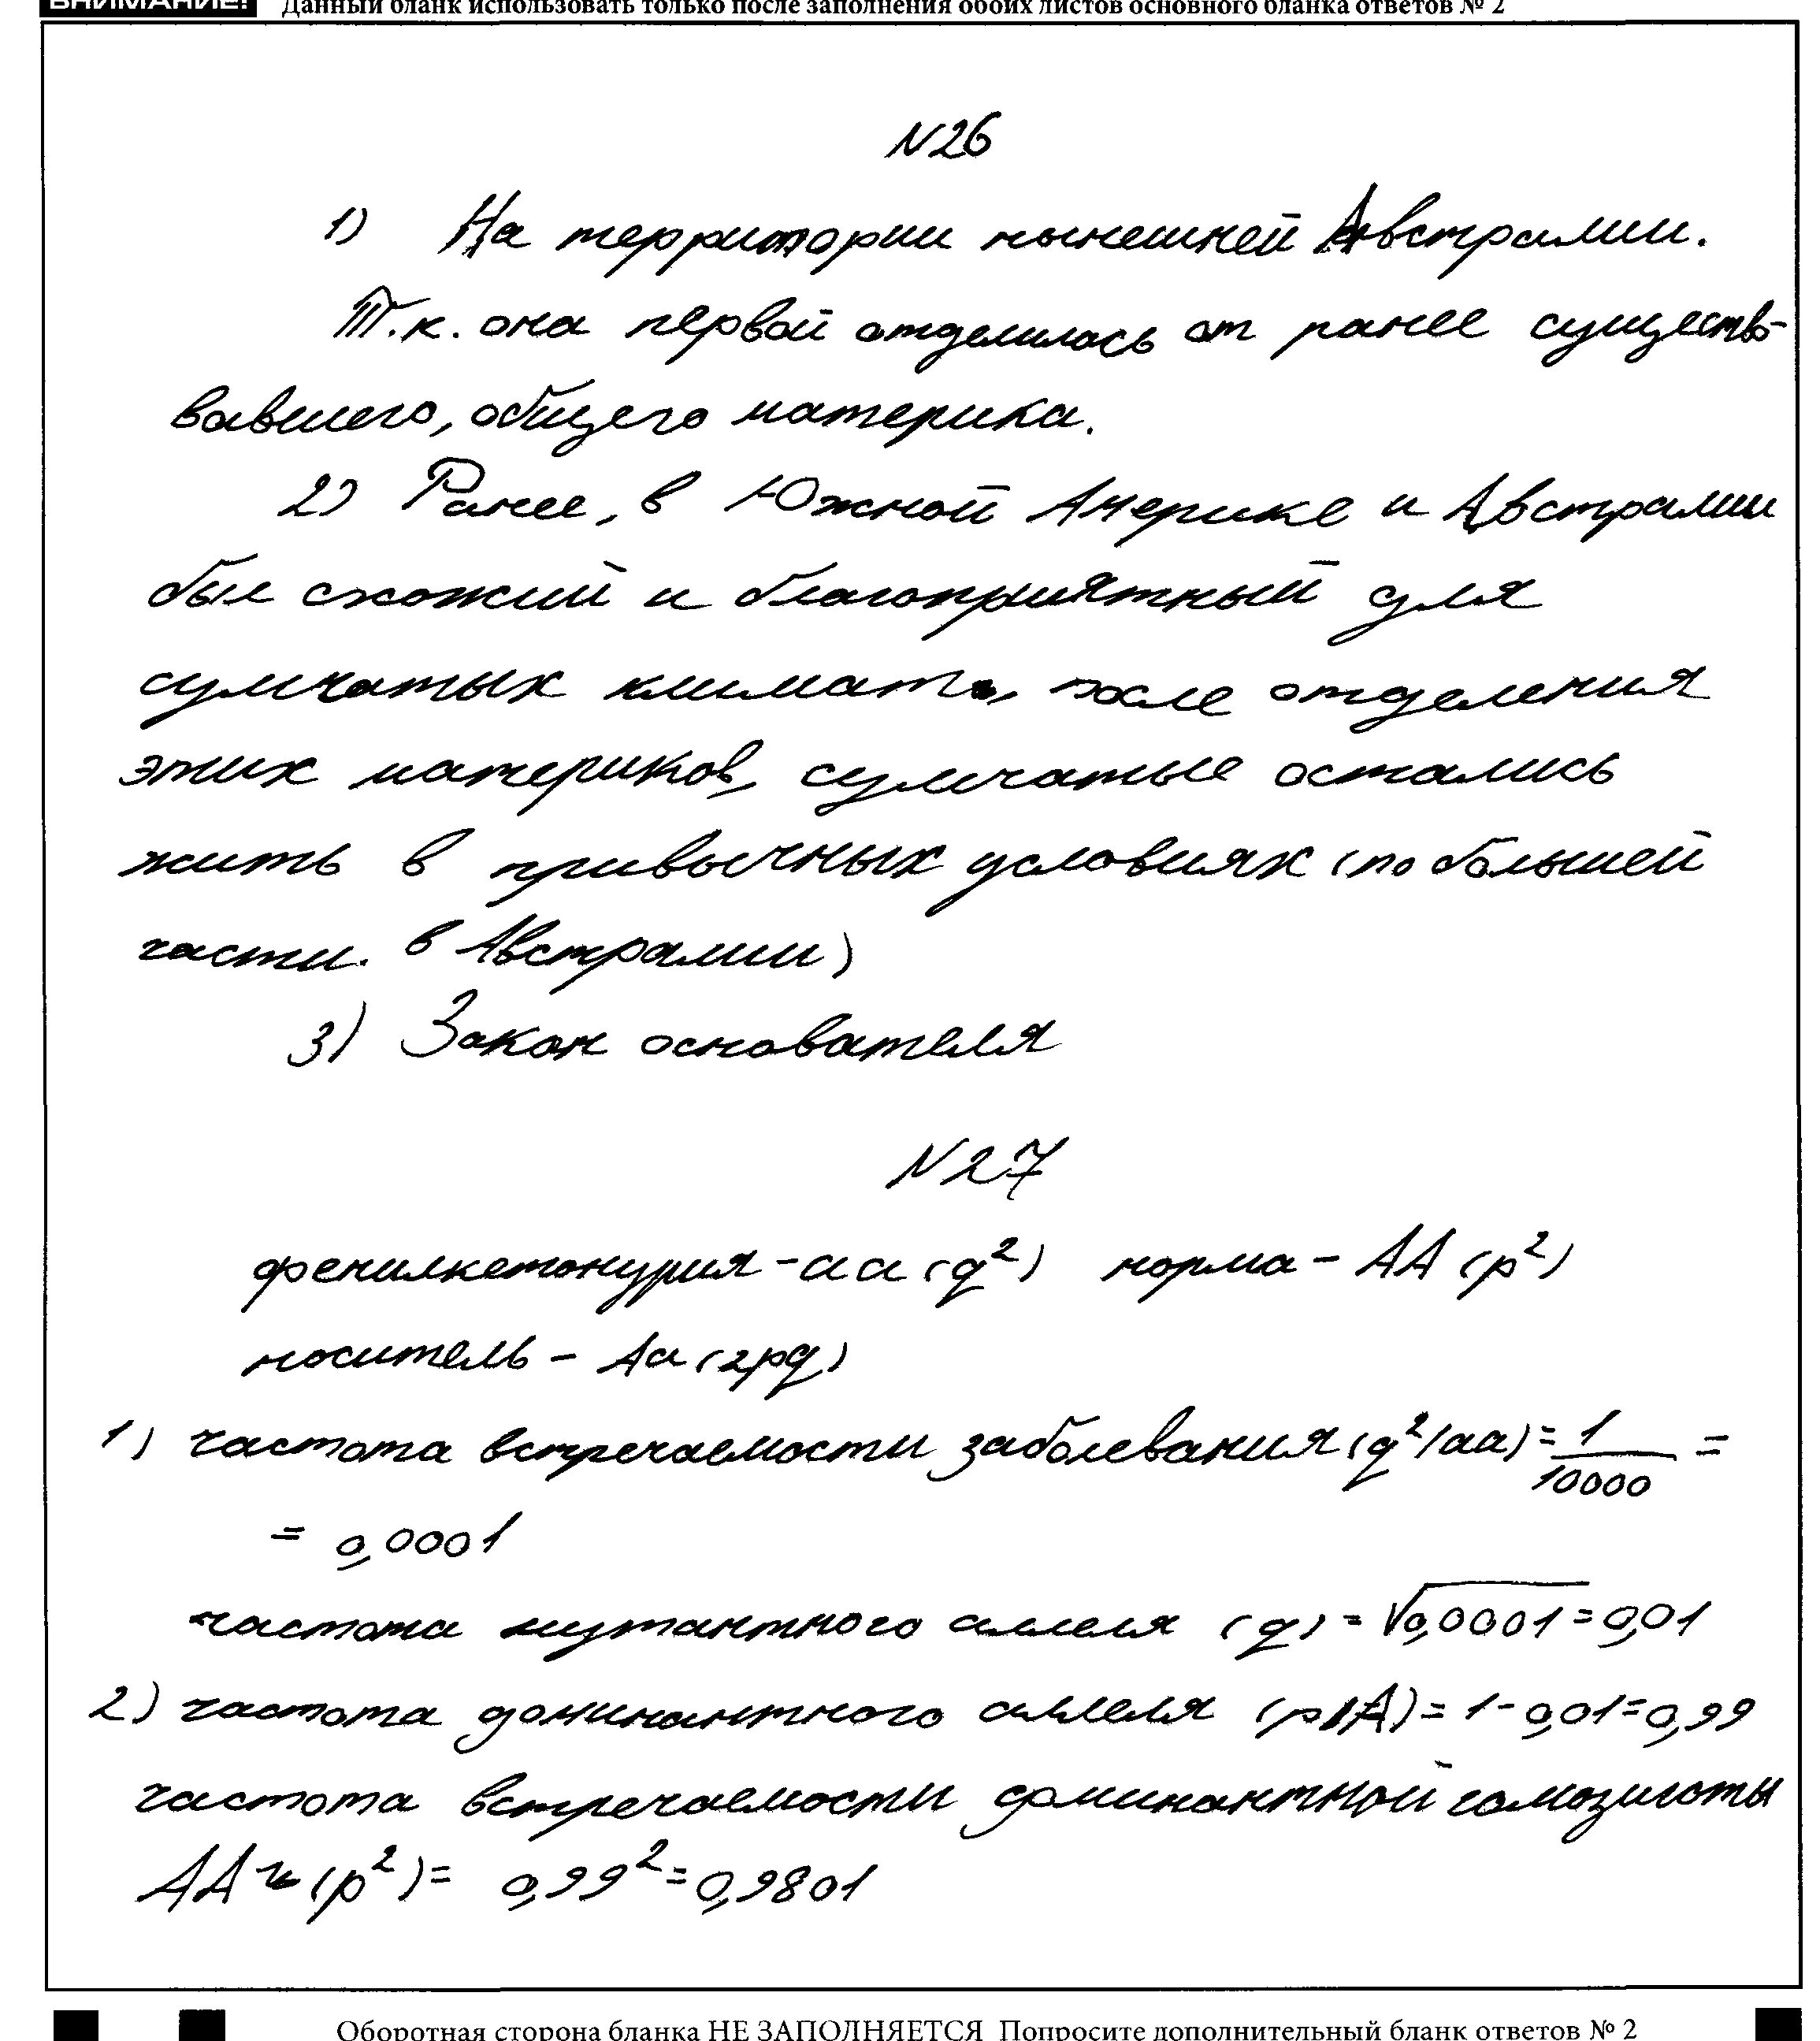 ВНИМАНИЕ! Данный бланк использовать только после заполнения обоих листов основного бланка ответов № 2
N26
1) На территории нынешней Австралии.
Т.к. она первой отделилась от ранее существо-
вавшего, общего материка.
2) Ранее, в Южной Америке и Австралии
был схожий и благоприятный для
сумчатых климат, после отделения
этих материков, сумчатые остались
жить в привычных условиях (по большей
части. в Австралии)
3) Закон основателя
N27
фенилкетонурия - аа (q²) норма - АА (p²)
носитель - Аа (2pq)
1) частота встречаемости заболевания (q²/аа) = 1/10000 =
= 0,0001
частота мутантного аллеля (q) = √0,0001 = 0,01
2) частота доминантного аллеля (p/А) = 1 - 0,01 = 0,99
частота встречаемости доминантной гомозиготы
АА (p²) = 0,99² = 0,9801
Оборотная сторона бланка НЕ ЗАПОЛНЯЕТСЯ Попросите дополнительный бланк ответов № 2